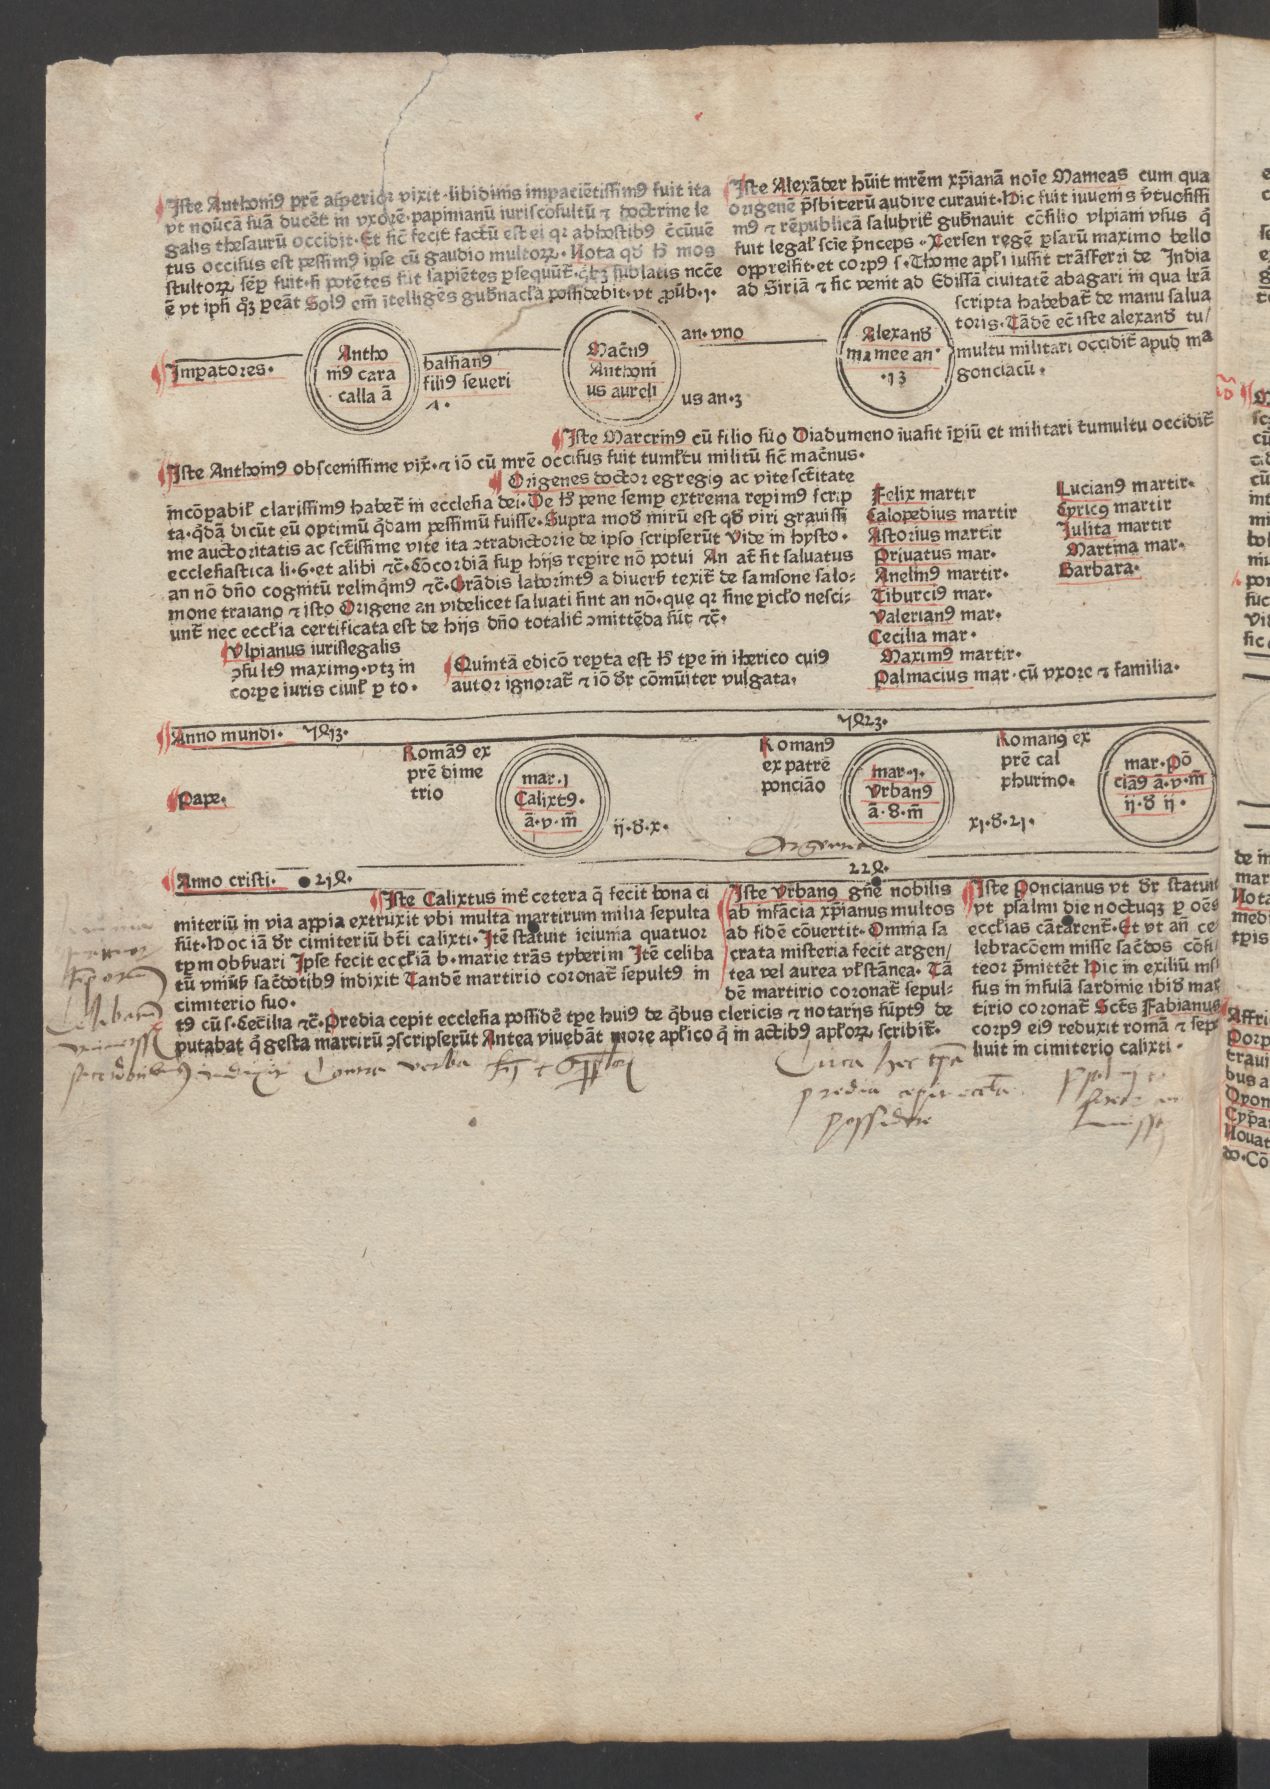 Iste Anthoniꝰ prē aſperior vixit · libidinis impaciētiſſimꝰ fuit ita
vt nouercā ſuā duceret in vxorē · papinianū iuriſcōſultū ⁊ doctrine le
galis theſaurū occidit · Et ſic fecit factū eſt ei qꝛ ab hoſtibꝰ
tus occiſus eſt peſſimꝰ ipſe cū gaudio multoꝝ · Nota qd̓ h̓ mos
ſtultoꝝ ſēp fuit · ſi potētes ſint ſapiētes ꝑſequūt̓ · ſublatis nccē
ē vt ipſi qꝫ ꝑeāt Solꝰ em̄ ītelligēs gub̓nacl̓a poſſidebit · vt ꝓub̓ · 1 ·
Iste Alexāder hūit mrēm xp̄ianā noīe Mameas cum qua
origenē p̄ſbiterū audire curauit · Hic fuit iuuenis v̓tuoſiſſi
mꝰ ⁊ rēpublicā ſalubrit̓ gub̓nauit cōſilio vlpiani vſus q̄
fuit legal̓ ſcīe p̄nceps · Xerſen regē ꝑſarū maximo bello
oppreſſit · et corpꝰ ſ · Thome apl̓i iuſſit trāſferri de India
ad Siriā ⁊ ſic venit ad Ediſſā ciuitatē abagari in qua lrā
ſcripta habebat̓ de manu ſalua
toris · Tādē ec̄ iſte alexand̓ tu/
multu militari occidit̓ apud ma
gonciacū ·
Imꝑatores ·
Antho
niꝰ cara
calla ā
baſſianꝰ
filiꝰ ſeueri
Macr̓nꝰ
Anthoni
us aureli
an · vno
us an · 3
Alexand̓
mamee an ·
· 13
Iste Marcrinꝰ cū filio ſuo Diadumeno īuaſit īꝑiū et militari tumultu occidit̓
Iste Anthoniꝰ obſceniſſime vix̓ · ⁊ iō cū mrē occiſus fuit tumultu militū ſic macr̓nus ·
Origenes doctor egregiꝰ ac vite ſctītate
incōꝑabil̓ clariſſimꝰ habet̓ in eccleſia dei · De h̓ pene ſemꝑ extrema reperimꝰ ſcrip
ta · qd̄ā dicūt eū optimū qd̄am peſſimū fuiſſe · Supra modū mirū eſt qd̓ viri grauiſſi
me auctoritatis ac ſctīſſime vite ita ↄtradictorie de ipſo ſcripſerūt Vide in hyſto ·
eccleſiaſtica li · 6 · et alibi ⁊c̄ · Cōcordiā ſuꝑ hijs reperire nō potui An at̄ ſit ſaluatus
an nō dn̄o cognitū relinqm̄ꝰ ⁊c̄ · Grādis laborintꝰ a diuerſ̓ texit̓ de ſamſone ſalo⸗
mone traiano ⁊ iſto Origene an videlicet ſaluati ſint an nō · que qꝛ ſine ꝑicl̓o neſci⸗
unt̓ nec eccl̓ia certificata eſt de hijs dn̄o totalit̓ ↄmittēda ſūt ⁊c̄ ·
Felix martir
Calopedius martir
Aſtorius martir
Priuatus mar ·
Anelinꝰ martir ·
Tiburciꝰ mar ·
Valerianꝰ mar ·
Cecilia mar ·
Maximꝰ martir ·
Palmacius mar · cū vxore ⁊ familia ·
Lucianꝰ martir ·
Cyricꝰ martir
Julita martir
Martina mar ·
Barbara ·
Vlpianus iuriſlegalis
ↄſultꝰ maximꝰ · vtꝫ in
corꝑe iuris ciuil̓ ꝑ to ·
Quintā edicō reperta eſt h̓ tꝑe in iherico cuiꝰ
autor ignorat̓ ⁊ iō dr̓ cōmūiter vulgata ·
Anno mundi · 5413 ·
5423 ·
Pape ·
Romāꝰ ex
prē dime
trio
mar · 1
Calixtꝰ ·
ā · v · m̄
ij · d̓ · x ·
Romanꝰ
ex patrē
ponciāo
mar · 1 ·
Vrbanꝰ
ā · 8 · m̄
xi · d̓ · 21 ·
Romanꝰ ex
prē cal
phurino ·
mar · Pō
ciāꝰ ā · v · m̄
ij · d̓ ij ·
Anno criſti · 214 ·
224 ·
Iste Calixtus int̓ cetera q̄ fecit bona ci
miteriū in via appia extruxit vbi multa martirum milia ſepulta
ſūt · Hoc iā dr̓ cimiteriū bt̄i calixti · Itē ſtatuit ieiunia quatuor
tꝑm obẜuari Ipſe fecit eccl̓iā b · marie trāſ tyberim Itē celiba
tū vniuẜ ſac̓dotibꝰ indixit Tandē martirio coronat̓ ſepultꝰ in
cimiterio ſuo ·
Iste Vrbanꝰ gn̄e nobilis
ab infācia xp̄ianus multos
ad fidē cōuertit · Omnia ſa
crata miſteria fecit argen/
tea vel aurea vl̓ ſtānea · Tā
dē martirio coronat̓ ſepul⸗
tꝰ cū ſ · Cecilia ⁊c̄ · Predia cepit eccleſia poſſidē tꝑe huiꝰ de qb̓us clericis ⁊ notarijs ſūptꝰ de
putabat q̓ geſta martirū ↄſcripſerūt Antea viuebāt more apl̓ico q̓ in actibꝰ apl̓oꝝ ſcribit̓ ·
Iste Poncianus vt dr̓ ſtatuit
vt pſalmi die noctuqꝫ ꝑ oēs
eccl̓ias cātarent̓ · Et vt an̄ ce
lebracōem miſſe ſac̓dos cōfi
teor p̄mittēt Hic in exiliū miſ
ſus in inſulā ſardinie ibid̓ mar
tirio coronat̓ Sctūs Fabianus
corpꝰ eiꝰ reduxit romā ⁊ ſepe
liuit in cimiterio calixti ·
Celibatum
ſacerdotibus indixit Contra verba
Circa hec tp̄a
predia cepit eccl̓a
poſſidere